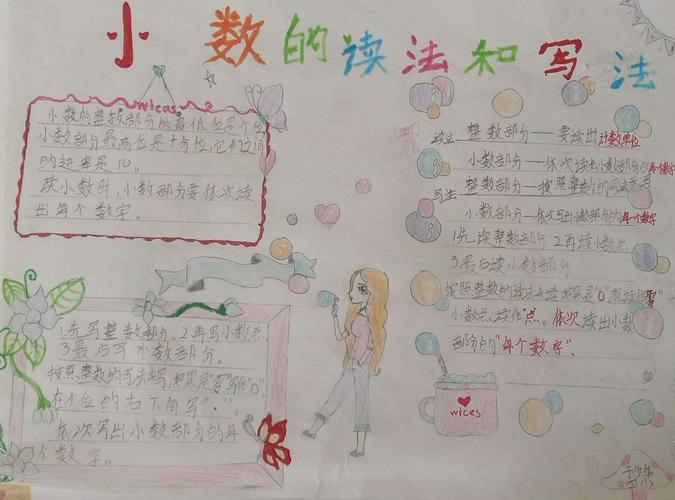 小数的读法和写法
wices
小数的整数部分的最低位是个位
小数部分最高位是十分位,它们之间
的进率是10。
读小数时,小数部分要依次读
出每个数字。
读法:整数部分——要读出计数单位
小数部分——依次读出小数部分的每个数字
写法:整数部分——按照整数的写法来写
小数部分—依次写出小数部分的每一个数字
1先读整数部分 2再读小数点
3最后读小数部分
按照整数的读法来读如果是"0"就读作"零"
小数点,读作"点"。依次读出小数
部分的"每个数字"。
1.先写整数部分。2.再写小数点
3.最后写小数部分。
按照整数的写法写,如果是"零"写作"0"。
在个位的右下角写"."。
依次写出小数部分的每
个数字。
wices